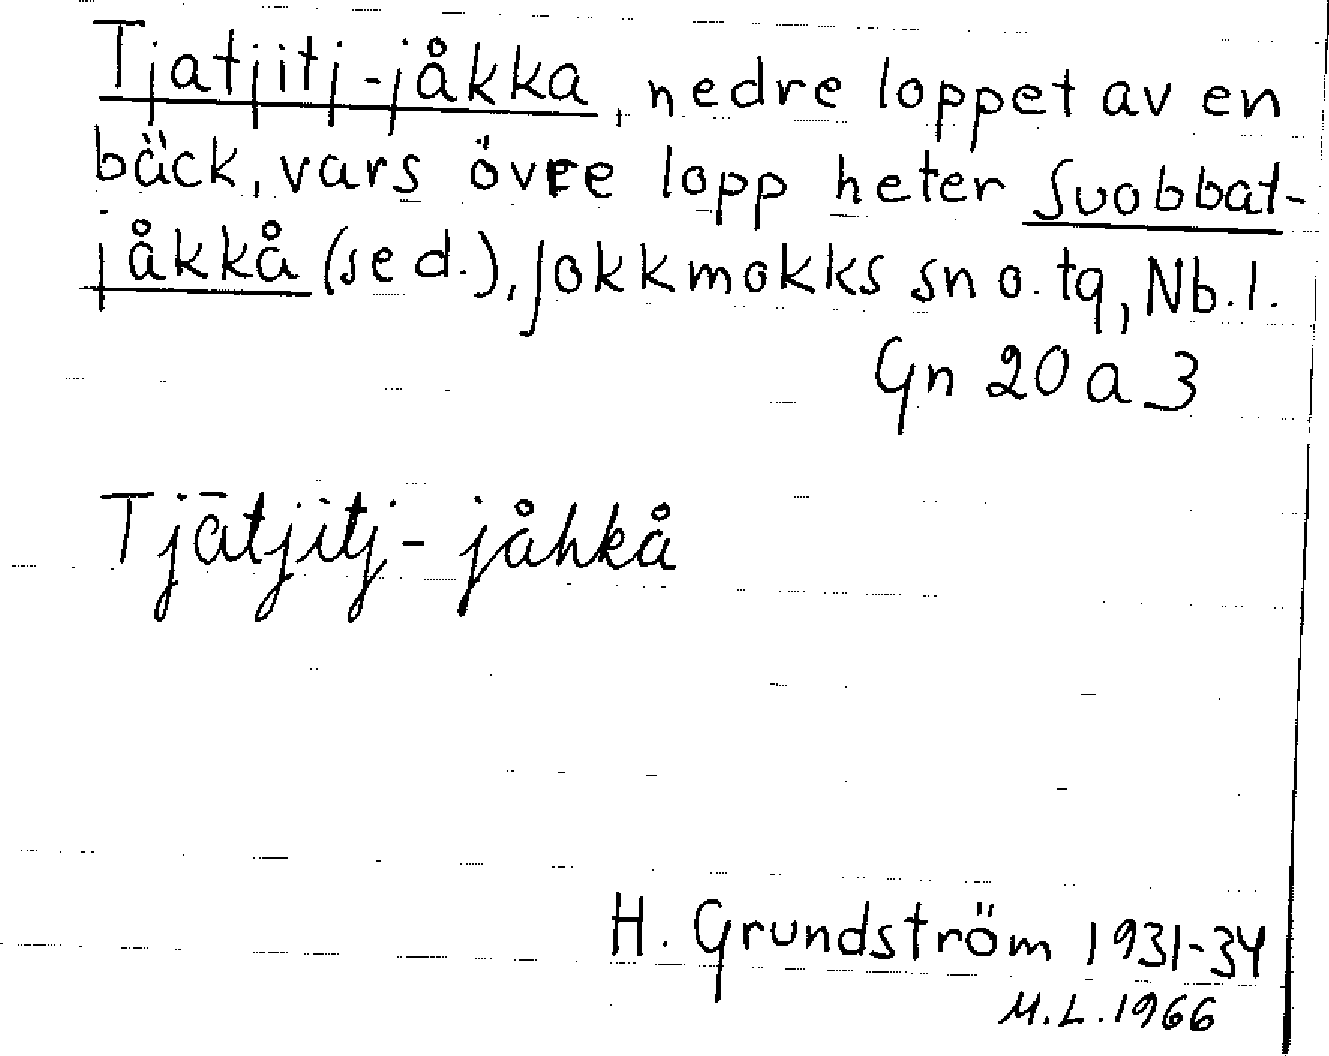 Tjatjitj-jåkka, nedre loppet av en
bäck, vars övre lopp heter Suobbat-
jåkkå (se d.), Jokkmokks sn o. tg, Nb. l.
Gn 20 a 3
Tjātjitj-jåhkå
H. Grundström 1931-34
M.L. 1966